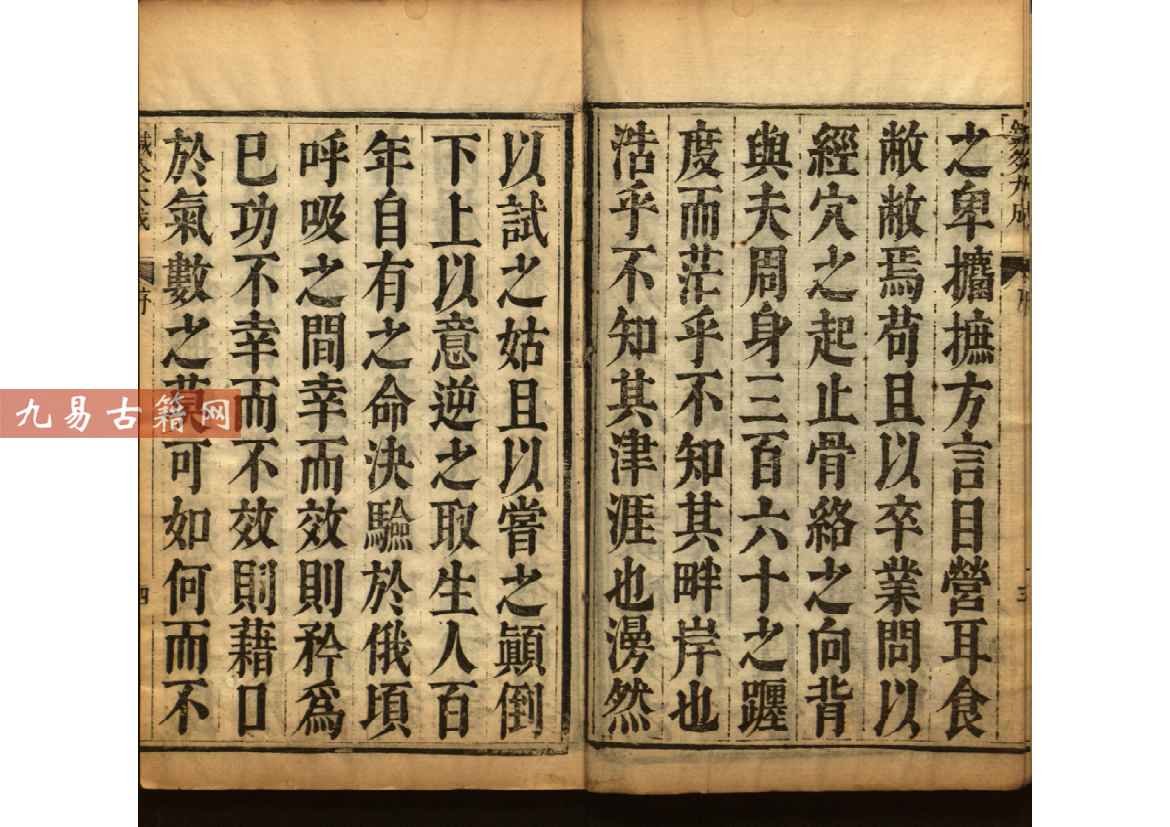 之卑攟摭方言日營耳食
敝敝焉苟且以卒業問以
經穴之起止骨絡之向背
與夫周身三百六十之躔
度而茫乎不知其畔岸也
浩乎不知其津涯也漫然
以試之姑且以嘗之顛倒
下上以意逆之取生人百
年自有之命決驗於俄頃
呼吸之間幸而效則矜爲
已功不幸而不效則藉口
於氣數之莫可如何而不
九易古籍网